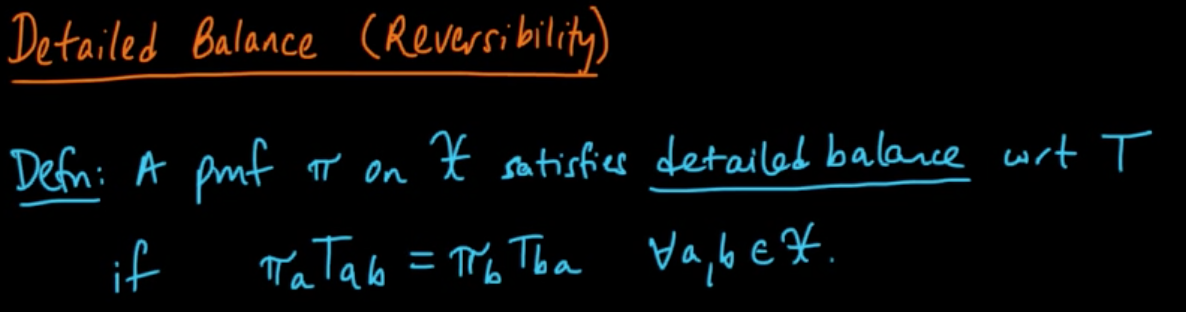 Detailed Balance (Reversibility)
Defn: A pmf π on 𝒳 satisfies detailed balance wrt T
if πₐTₐb = πbTbₐ ∀a,b ∈ 𝒳.